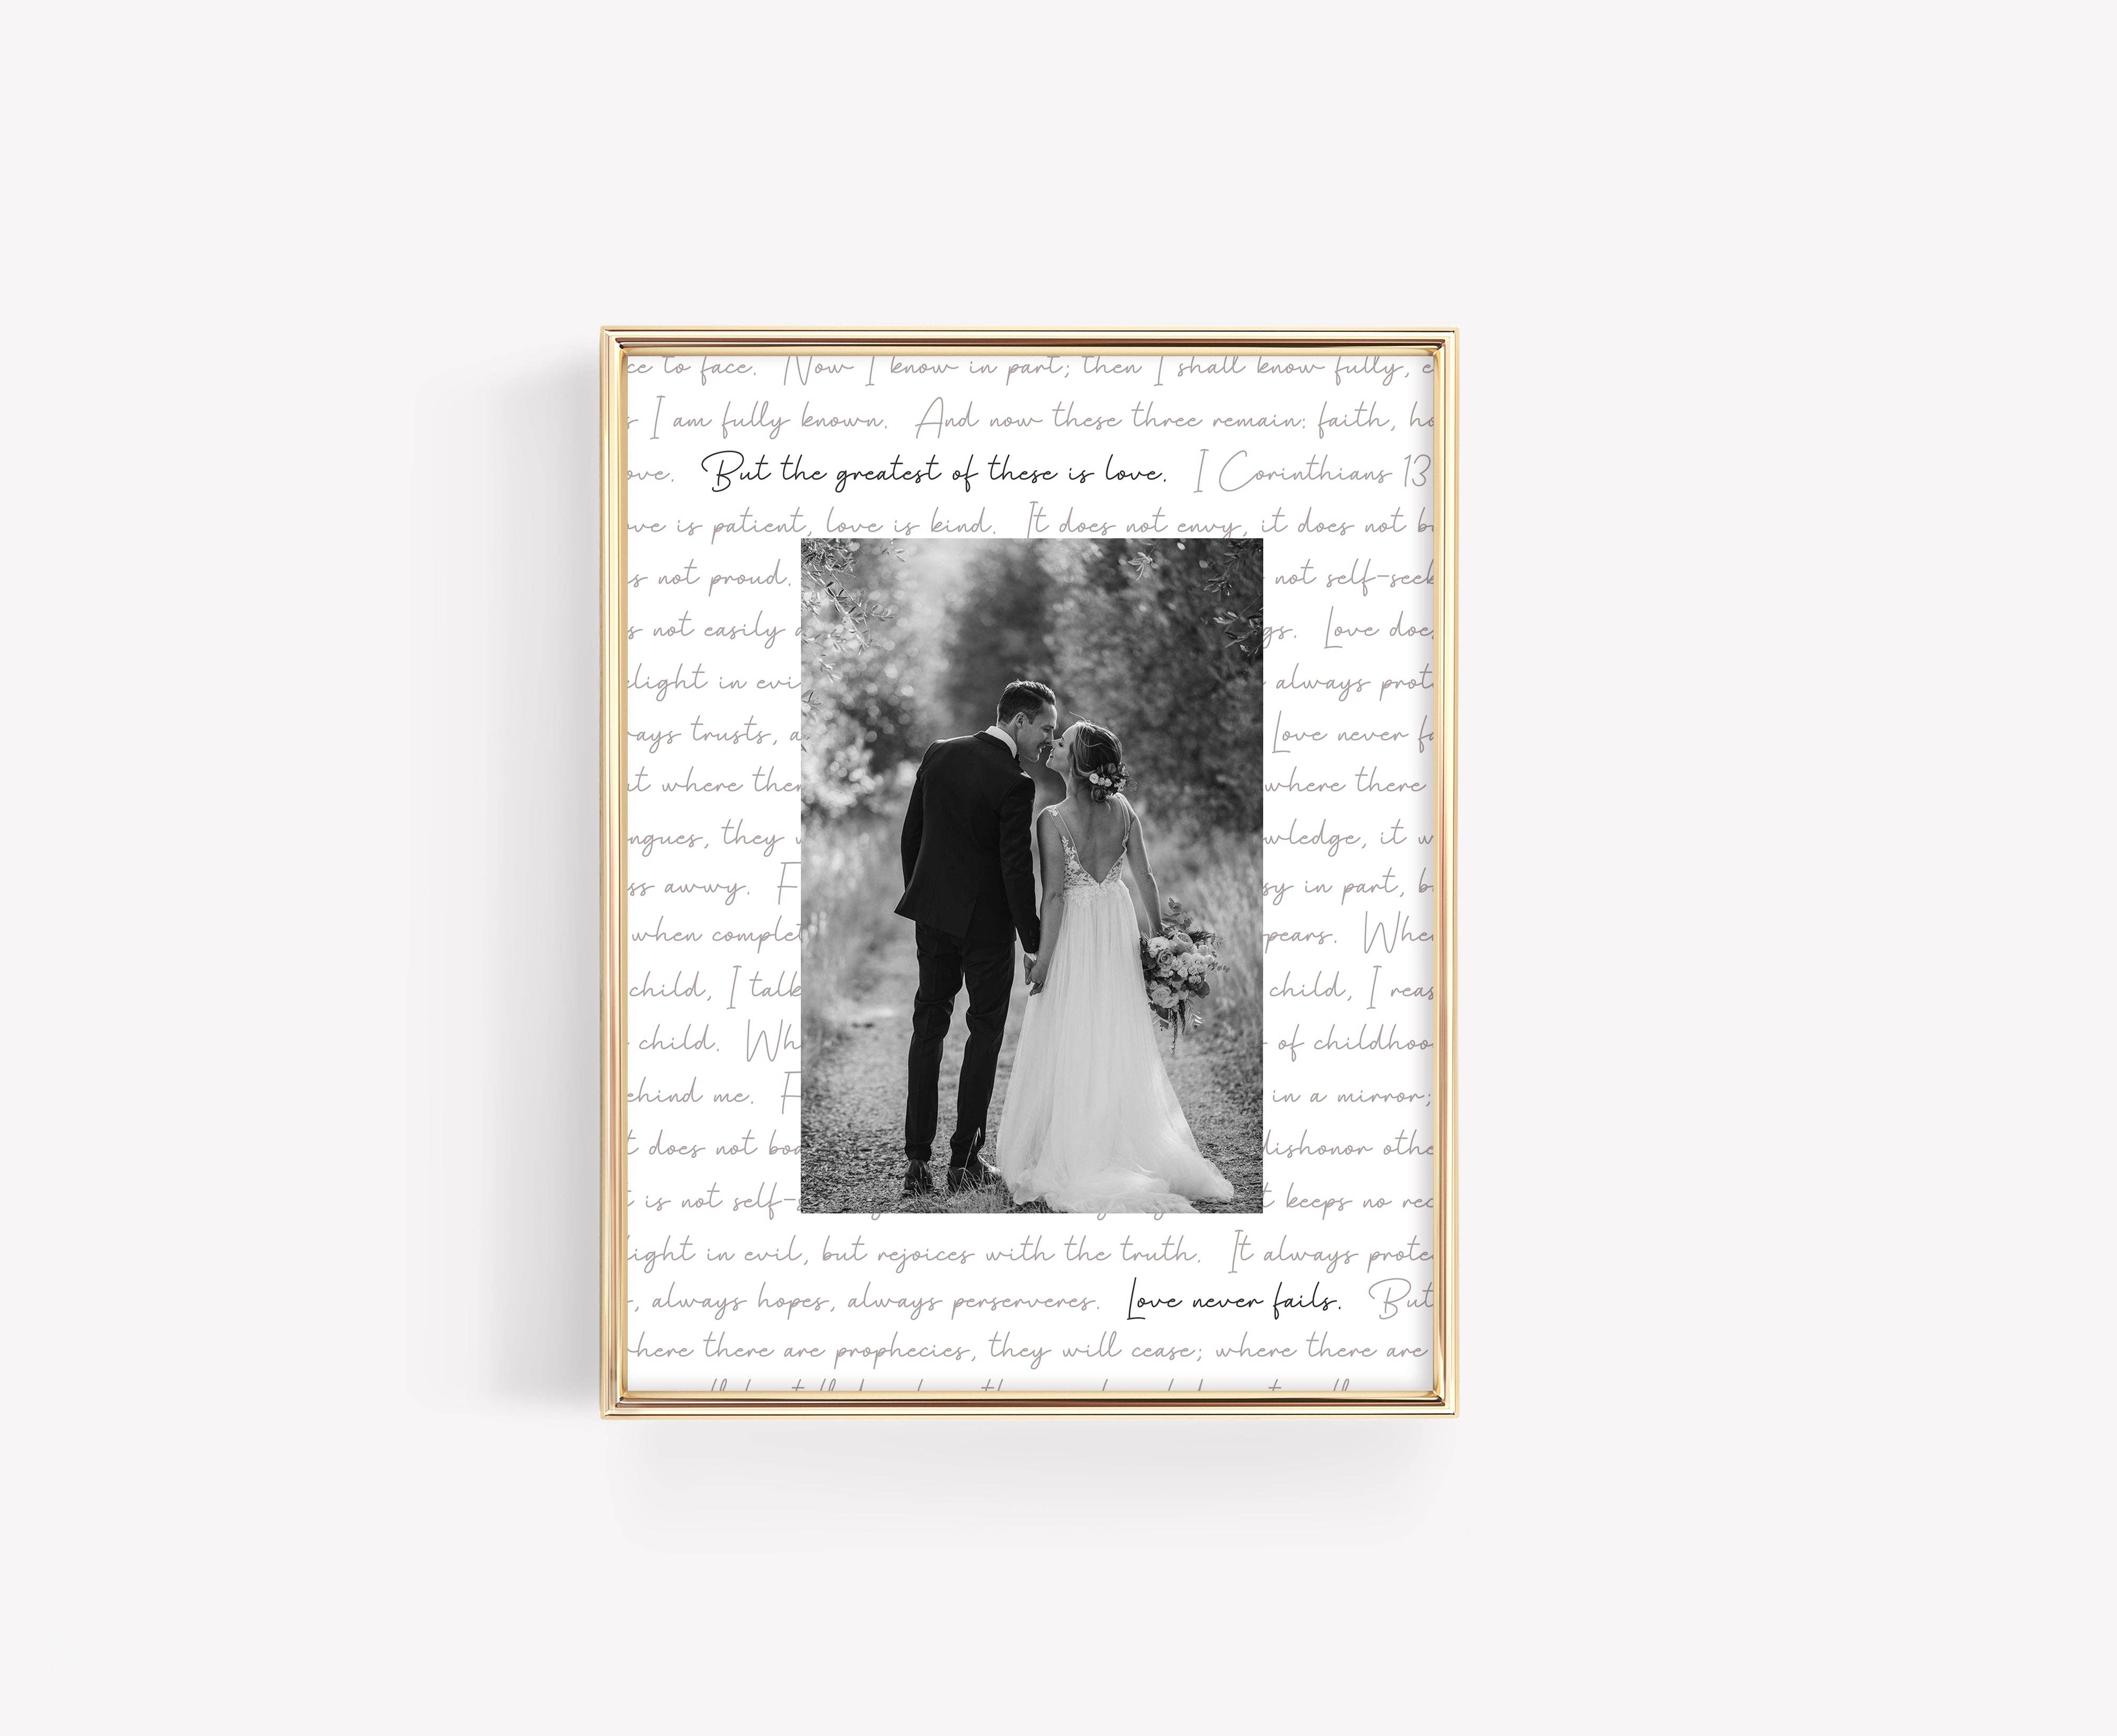 ce to face. Now I know in part; then I shall know fully, e
s I am fully known. And now these three remain: faith, ho
ove. But the greatest of these is love. I Corinthians 13
ove is patient, love is kind. It does not envy, it does not b
s not proud. not self-seek
s not easily gs. Love does
elight in evi always prote
ways trusts, a Love never fa
ut where ther where there
ngues, they w wledge, it w
ss awwy. F sy in part, b
when complet pears. When
child, I talk child, I reas
child. Wh of childhoo
ehind me. F in a mirror;
t does not boa dishonor othe
t is not self-s t keeps no rec
light in evil, but rejoices with the truth. It always prote
, always hopes, always perserveres. Love never fails. But
where there are prophecies, they will cease; where there are